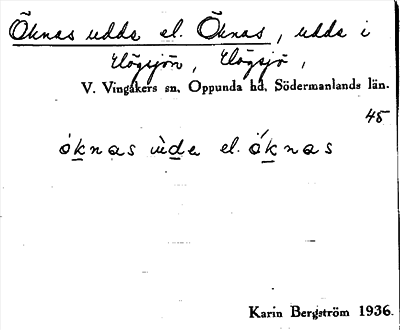 Öknas udde el. Öknas, udde i
Högsjön, Högsjö,
V. Vingåkers sn, Oppunda hd, Södermanlands län.
45
öknas el. öknas
Karin Bergström 1936.